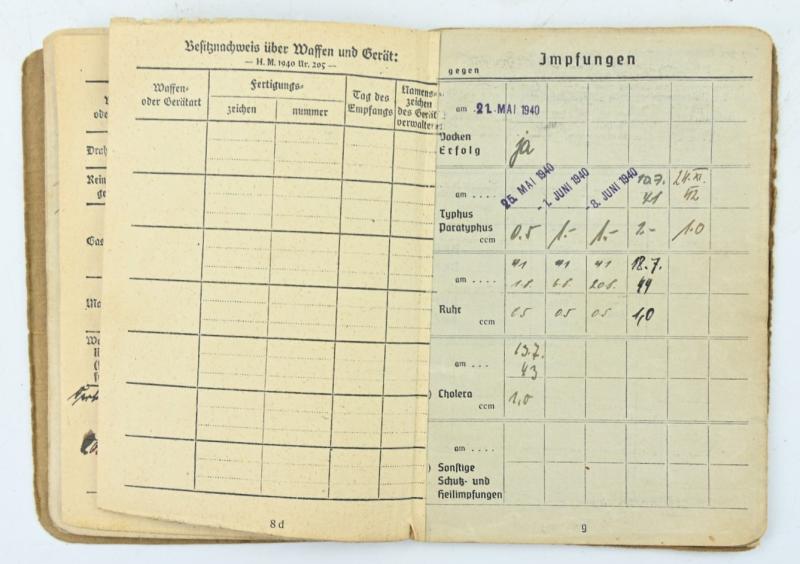 Besitznachweis über Waffen und Gerät:
— H. M. 1940 Nr. 205 —
Waffen-
oder Gerätart
Fertigungs-
zeichen
nummer
Tag des
Empfangs
Namens-
zeichen
des Gerät
verwalters
Drah
Rein
ge
Gas
8 d
Impfungen
gegen
am ... 21. MAI 1940
Pocken
Erfolg
ja
am ....
25. MAI 1940
-1. JUNI 1940
-8. JUNI 1940
10.7. 41
24. XI. 42
Typhus
Paratyphus
ccm
0.5 1.- 1.- 2.- 1.0
41 41 41 18.7.
am .... 44
Ruhr
ccm
05 05 05 1,0
13.7.
am ... 43
Cholera
ccm
1,0
am ....
Sonstige
Schutz- und
Heilimpfungen
9